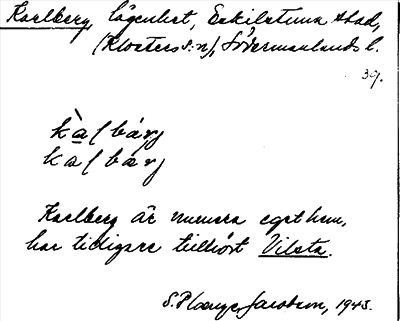 Karlberg, lägenhet, Eskilstuna stad,
(Klosters s:n), Södermanlands l.
39.
Karlberg är numera eget hem,
har tidigare tillhört Vilsta.
S. Plœnge Jacobson, 1943.